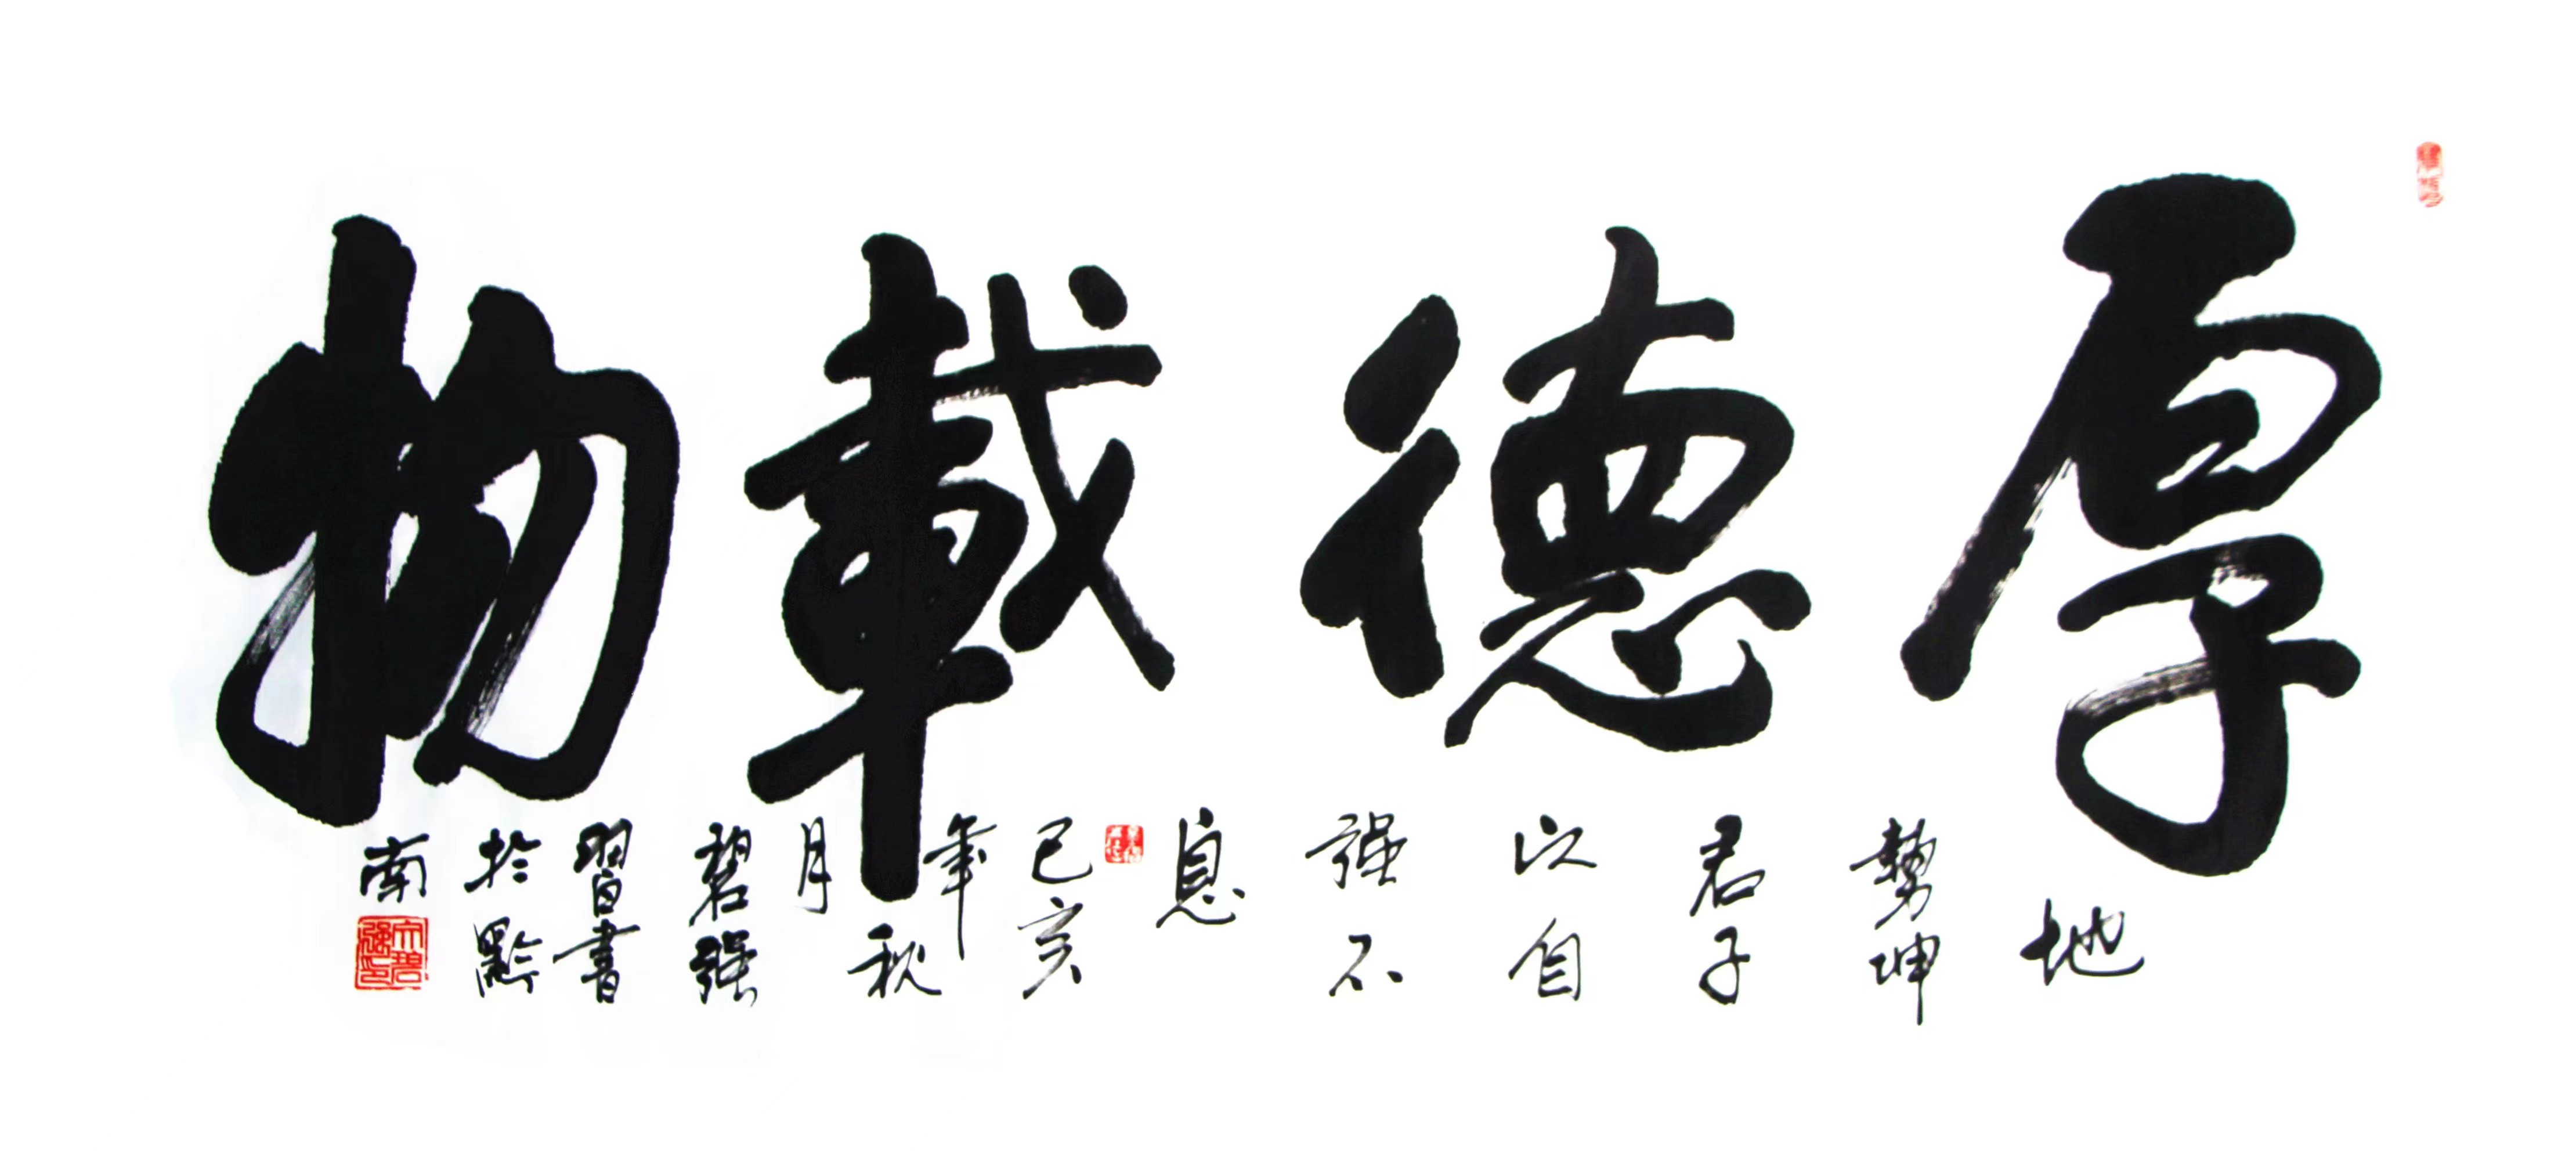 厚德載物
地勢坤君子以自强不息
己亥年秋月碧强習書於黔南